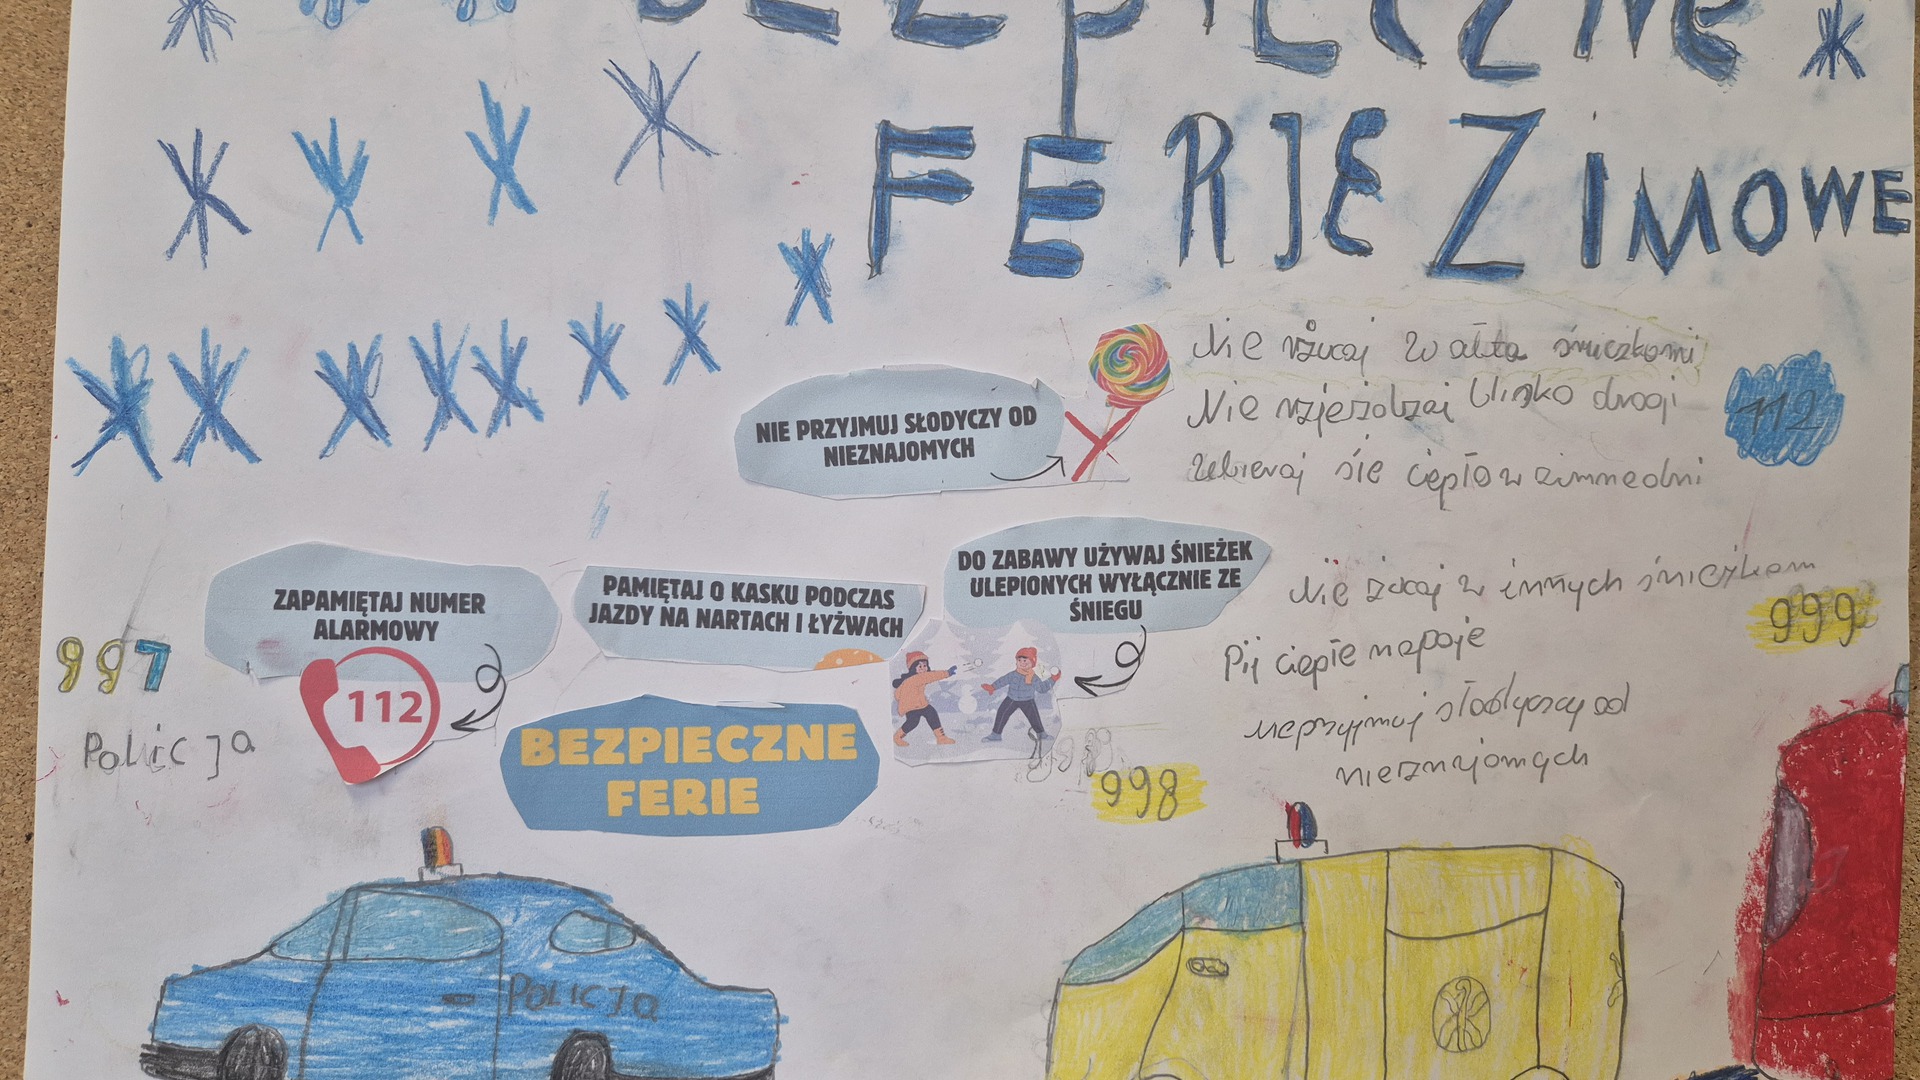 BEZPIECZNE
FERJE ZIMOWE
Nie rzucaj w auta śnieżkami
Nie zjeżdżaj blisko drogi
112
NIE PRZYJMUJ SŁODYCZY OD
NIEZNAJOMYCH
Ubieraj się ciepło w zimne dni
DO ZABAWY UŻYWAJ ŚNIEŻEK
ULEPIONYCH WYŁĄCZNIE ZE
ŚNIEGU
PAMIĘTAJ O KASKU PODCZAS
JAZDY NA NARTACH I ŁYŻWACH
ZAPAMIĘTAJ NUMER
ALARMOWY
112
997
Policja
Nie rzucaj w innych śnieżkam
999
Pij ciepłe napoje
nieprzyjmuj słodyczy od
nieznajomych
BEZPIECZNE
FERIE
998
POLICJA